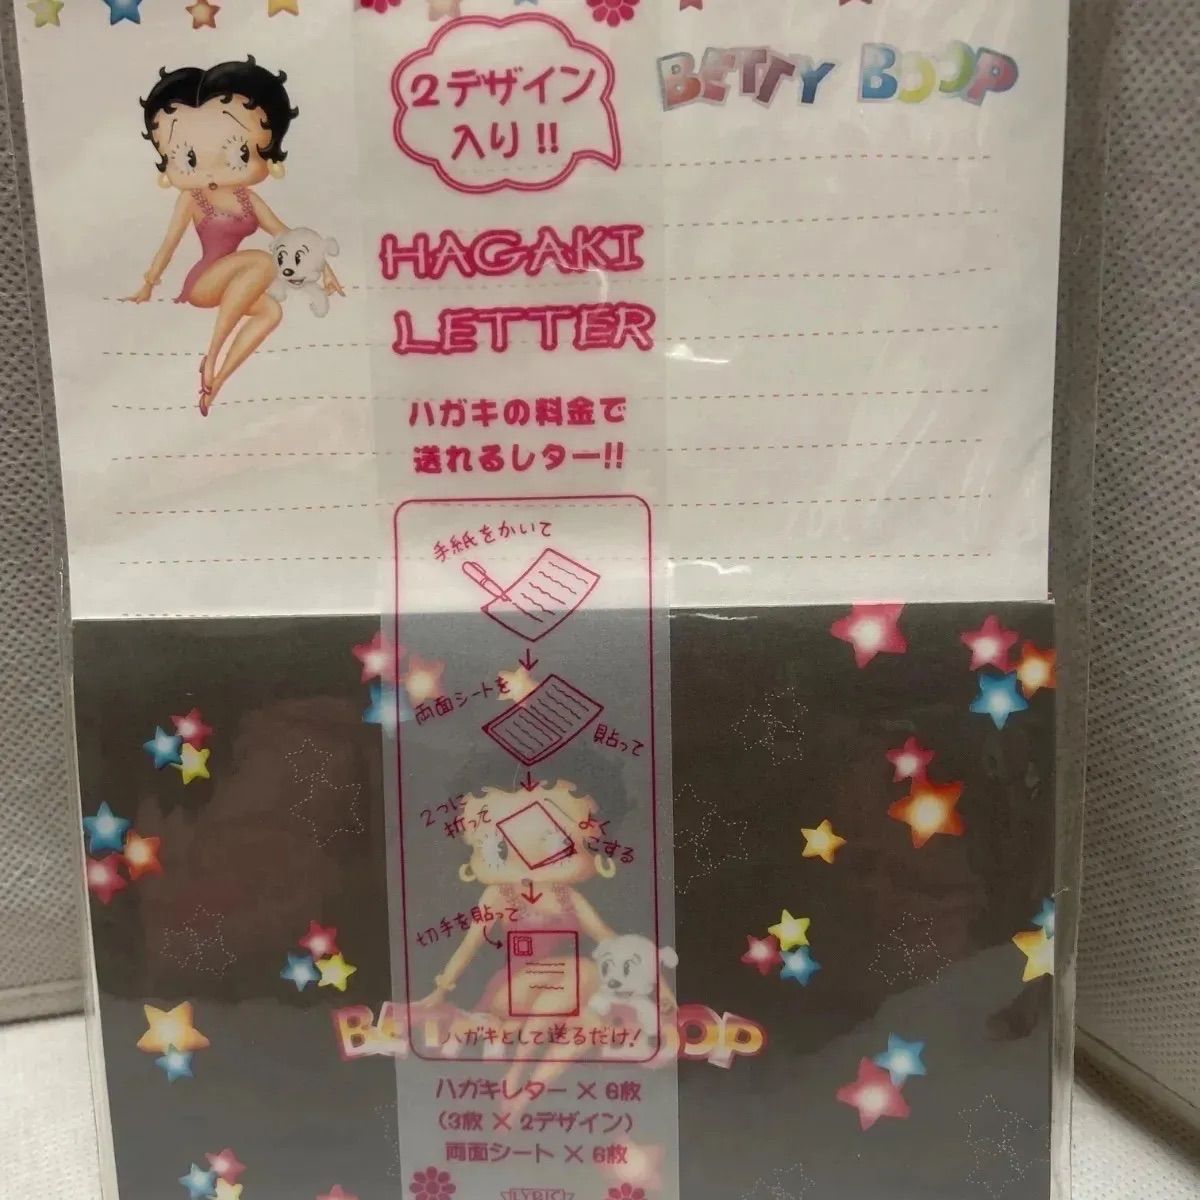 2デザイン
入り!!
BETTY BOOP
HAGAKI
LETTER
ハガキの料金で
送れるレター!!
手紙をかいて
両面シートを
貼って
2つに
折って
よく
こする
切手を貼って
ハガキとして送るだけ!
BETTY BOOP
ハガキレター × 6枚
(3枚 × 2デザイン)
両面シート × 6枚
LYRIC